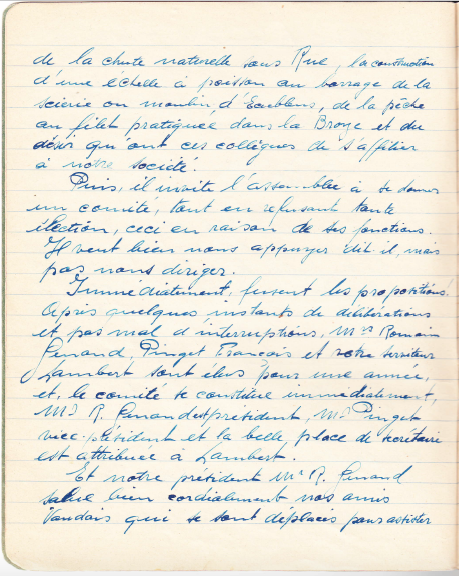 de la chute naturelle sous Rue, la construction
d'une échelle à poisson au barrage de la
scierie ou moulin, d'Ecublens, de la pêche
au filet pratiquée dans la Broye et du
désir qu'ont ces collègues de s'affilier
à notre société.
Puis, il invite l'assemblée à se donner
un comité, tout en refusant toute
élection, ceci en raison de ses fonctions.
Il veut bien nous appuyer dit-il, mais
pas nous diriger.
Immédiatement, fusent les propositions.
Après quelques instants de délibérations
et pas mal d'interruptions, Mrs Romain
Pinget François et votre serviteur
Lambert sont élus pour une année,
et, le comité se constitue immédiatement,
Mr R. est président, Mr Pinget
vice-président et la belle, place de secrétaire
est attribuée à Lambert.
Et notre président Mr R.
salue bien cordialement nos amis
Vaudois qui se sont déplacés pour assister